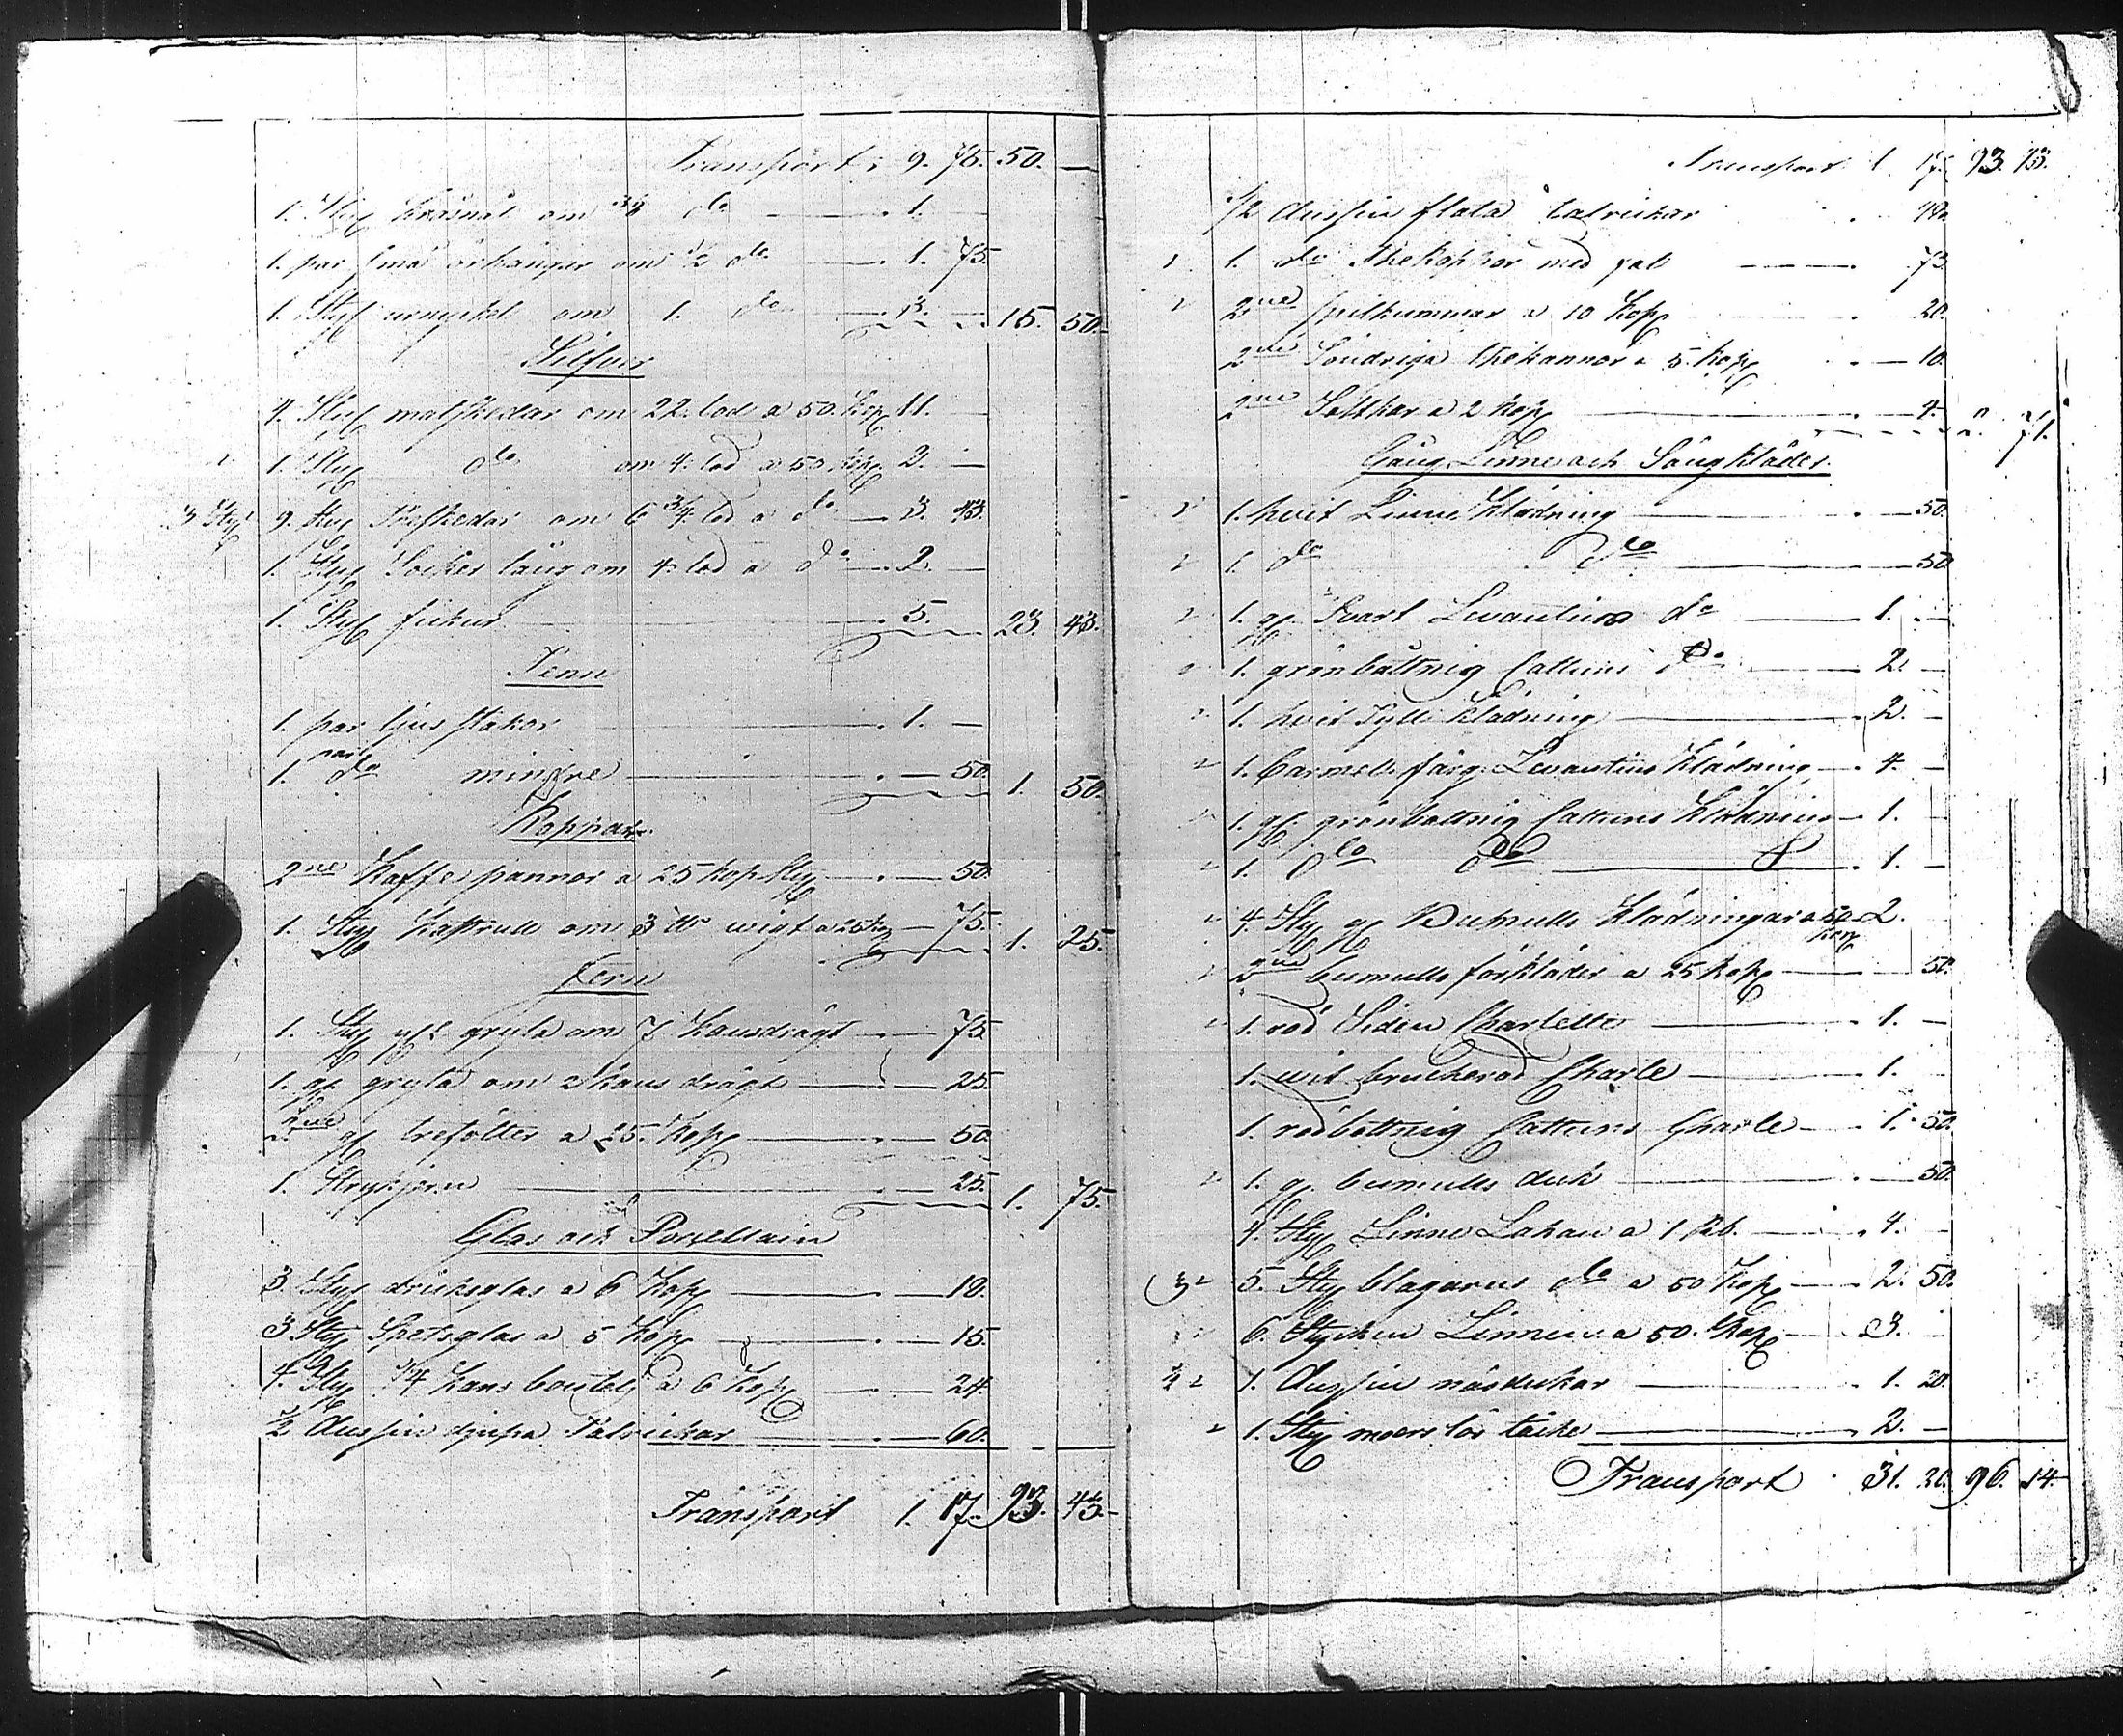 Transport: 9. 75. 50. —
1. Styck kråsnål om 3/8 do — . 1. —
1. par små örhängor om 1/2 do — . 1. 75.
1. Styck urnykel om 1. do — . 3. — 15. 50.
Silfver
4. Styck matskedar om 22. lod a 50. Kop 11. —
1. Styck do om 4. lod a 50. Kop 2. —
3 Styck 9. Styck Theskedar om 6 3/4 lod a do — 3. 43.
1. Styck Socker tång om 4. lod a do — . 2. —
1. Styck — . 5. — 23. 43.
Tenn
1. par ljus stakor — . 1. —
1. par do mindre — . — 50. 1. 50.
Koppar
2ne Kaffe pannor a 25 kop Styck — . — 50.
1. Styck Kastrull om 3 wigt a 25 Kop — 75. 1. 25.
Jern
1. Styck gryta om 7. Kansdrägt . — 75
1. gl gryta om 2 kans drägt — . — 25.
2ne gl trefötter a 25. Kop — . — 50.
1. Strykjern — . — 25. 1. 75.
Glas och Porcellain
3. Styck dricksglas a 6 Kop — . — 18.
3 Styck Spetsglas a 5 Kop — . — 15.
4. Styck 3/4 Kans boutelj a 6 Kop — . — 24.
1/2 Dussin djupa Talrickar — . — 60.
Transport 1. 17. 93. 43.
Transport 1. 17. 93. 43.
1/2 Dussin flata talrickar . 48.
1. do Thekoppar med fat — . 75
2ne spilkummar a 10 Kop . 20.
2ne Söndriga thekannor a 5. Kop . — 10.
2ne Saltkar a 2 Kop — . — 4. 2. 71.
Gång Linne och Sängkläder
1. hvit Linne Klädning — . — 50.
1. do do — . — 50
1. gl Svart Levantins do — . 1. —
1. grönbottnig Cattuns do — . 2. —
1. hvit Tylls Klädning — . 2. —
1. Carmell. färg. Levantins Klädning — . 4. —
1. gl grönbottnig Cattuns Klädning — 1. —
1. do do — . 1. —
4. Styck gl Bumulls Klädningar a 50 Kop 2.
2ne bumulls förkläder a 25 Kop — 50.
1. röd Siden Charlette — . 1. —
1. wit Charle — . 1.
1. rödbottnig Cattuns Charle — . 1. 50.
1. gl bumulls duk — . — 50.
4. Styck Linne Lakan a 1 Rub. — . 4. —
3 5. Styck blagarns do a 50 Kop — . 2. 50.
6. Stycken Linnen a 50. Kop — . 3. —
1. Dussin näsdukar — . 1. 20.
1. Styck täcke — . 2. —
Transport . 31. 20. 96. 14.